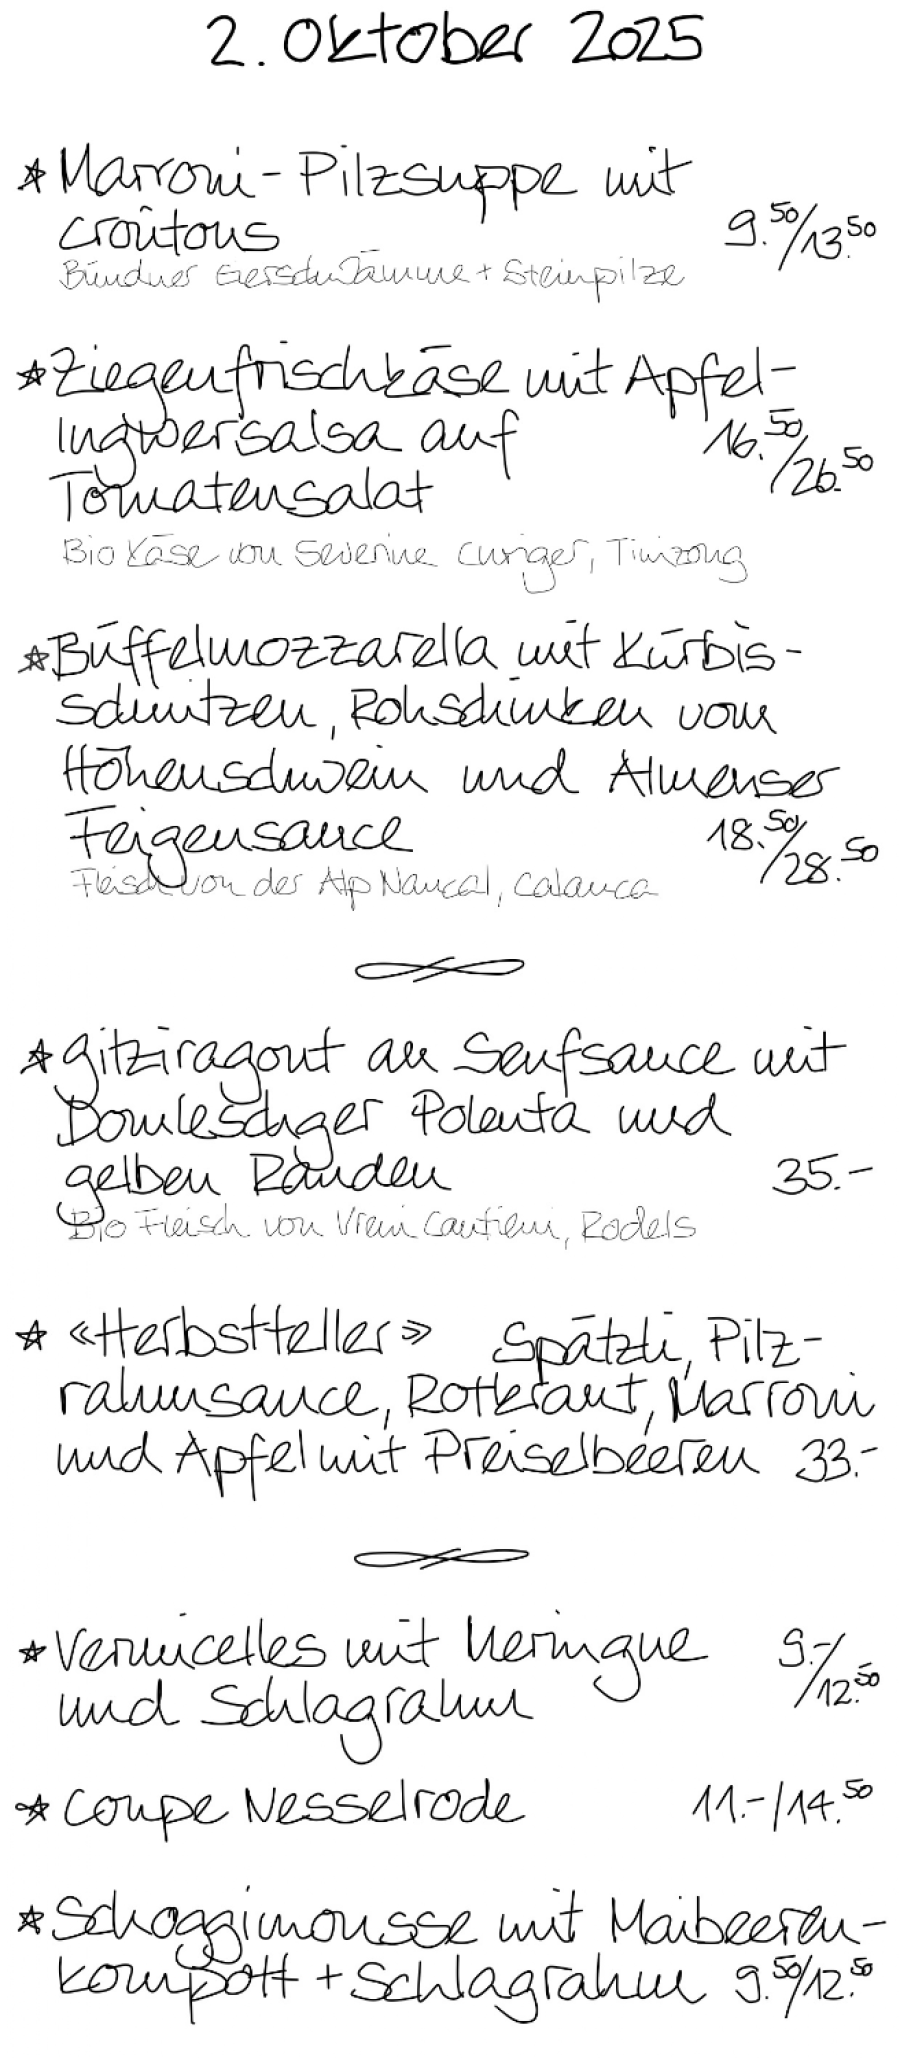 2. Oktober 2025
* Marroni-Pilzsuppe mit
Croûtons 9.50/13.50
Bündner Eierschwämme + Steinpilze
* Ziegenfrischkäse mit Apfel-
Ingwersalsa auf 16.50/26.50
Tomatensalat
Bio Käse von Severine Curiger, Tinizong
* Büffelmozzarella mit Kürbis-
schnitzen, Rohschinken vom
Höhenschwein und Almenser
Feigensauce 18.50/28.50
Fleisch von der Alp Naucal, Calanca
* Gitziragout an Senfsauce mit
Domleschger Polenta und
gelben Randen 35.-
Bio Fleisch von Vreni Cantieni, Rodels
* «Herbstteller» Spätzli, Pilz-
rahmsauce, Rotkraut, Marroni
und Apfel mit Preiselbeeren 33.-
* Vermicelles mit Meringue 9.-/12.50
und Schlagrahm
* Coupe Nesselrode 11.-/14.50
* Schoggimousse mit Maibeeren-
kompott + Schlagrahm 9.50/12.50